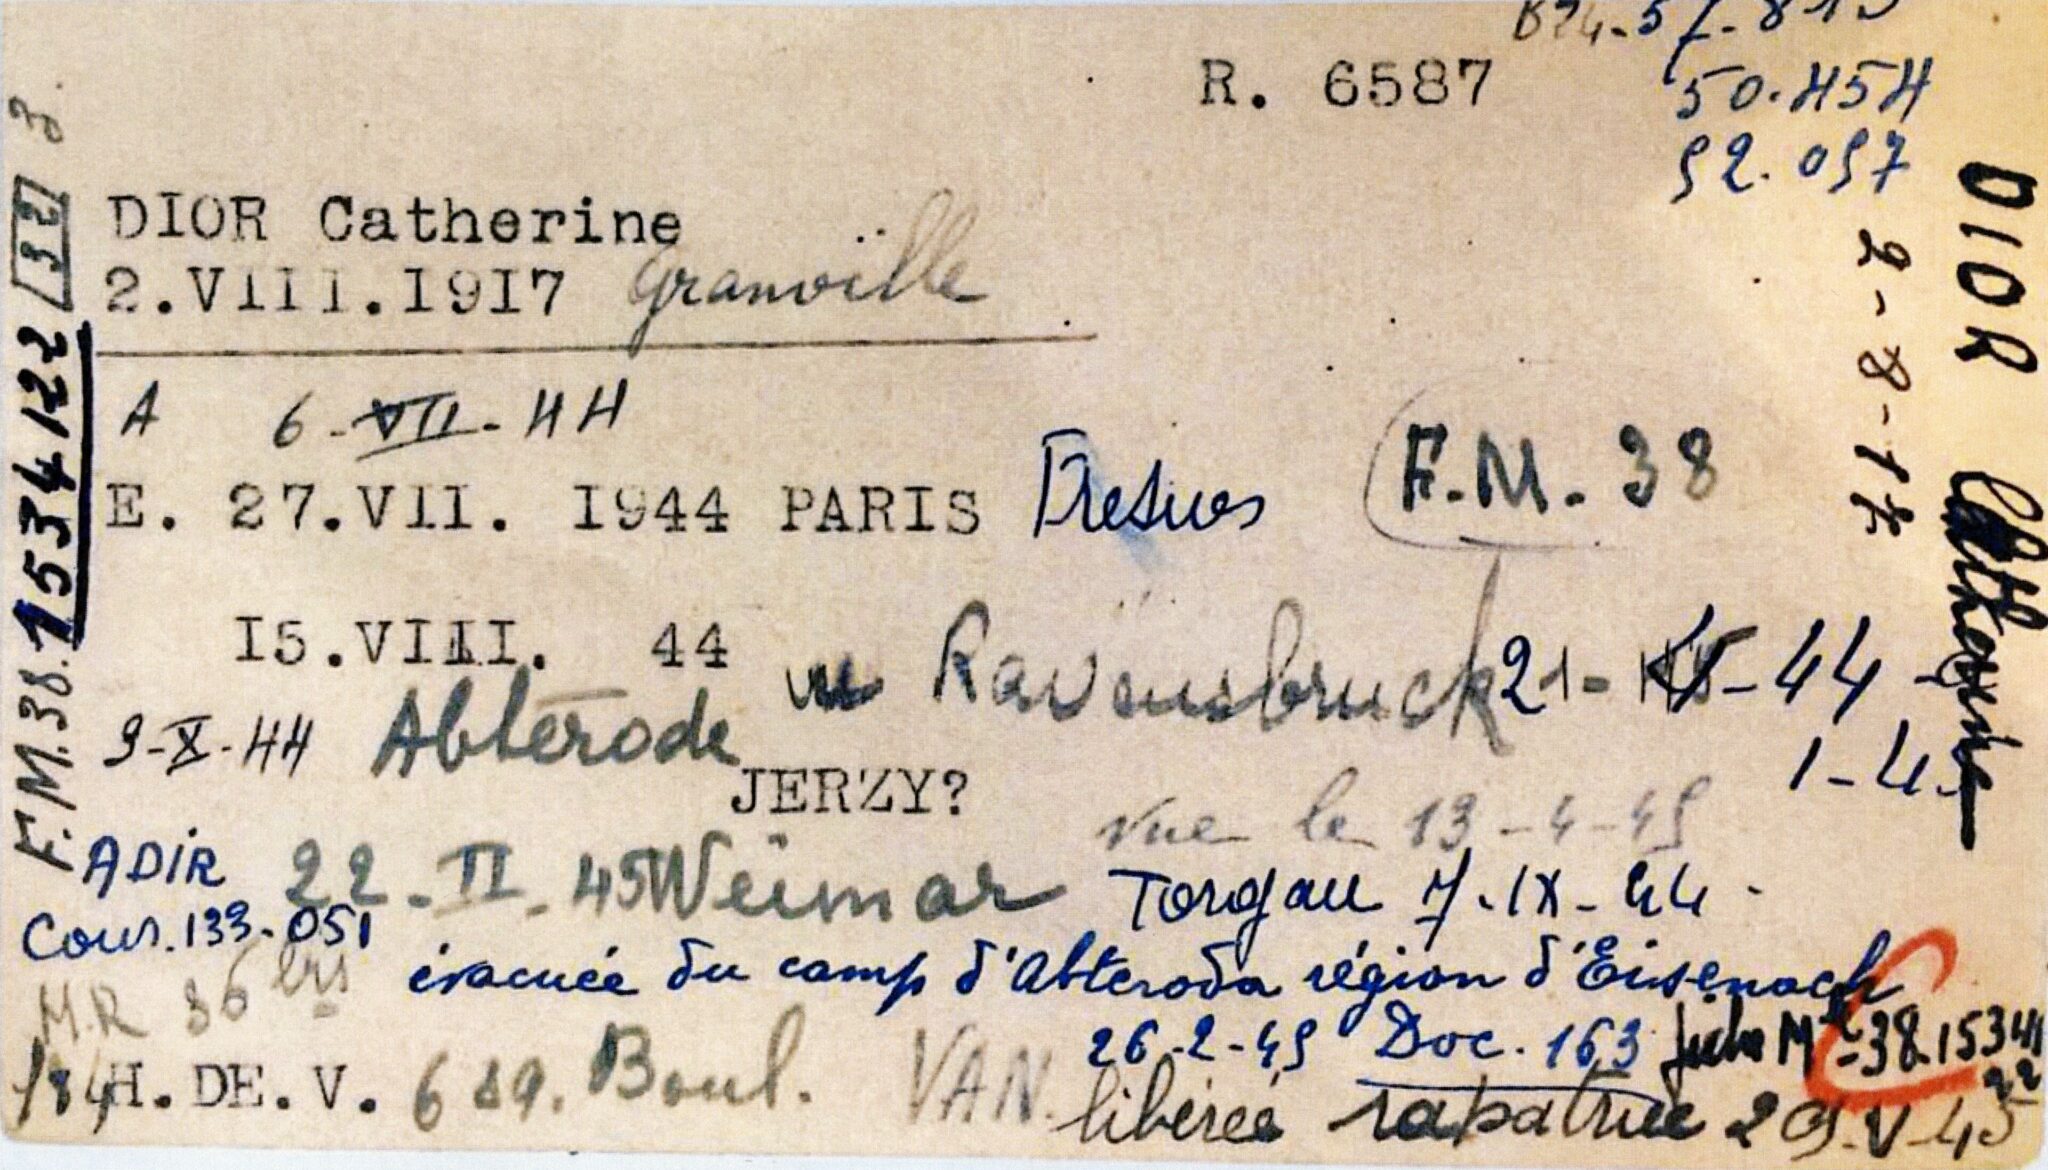 R. 6587
50.454
52.057
DIOR Catherine
2.VIII.1917 Granville
A 6-VII-44
E. 27.VII. 1944 PARIS Fresnes
F.M. 38
15.VIII. 44 Ravensbruck 21- -44
9-X-44 Abterode
1-4
JERZY?
vue le 13-4-45
ADIR 22-II-45 Weimar Torgau 7.IX-44
Cour.133.051
évacuée du camp d'Abteroda région d'Eisenach
M.R 36
26.2-45 Doc. 163 fiche M 38.15341
22
184 H.DE.V. 689. Boul. VAN.
libérée rapatriée 29-V-45
F.M.38.1534122 32 3.
DIOR Catherine
2-8-17